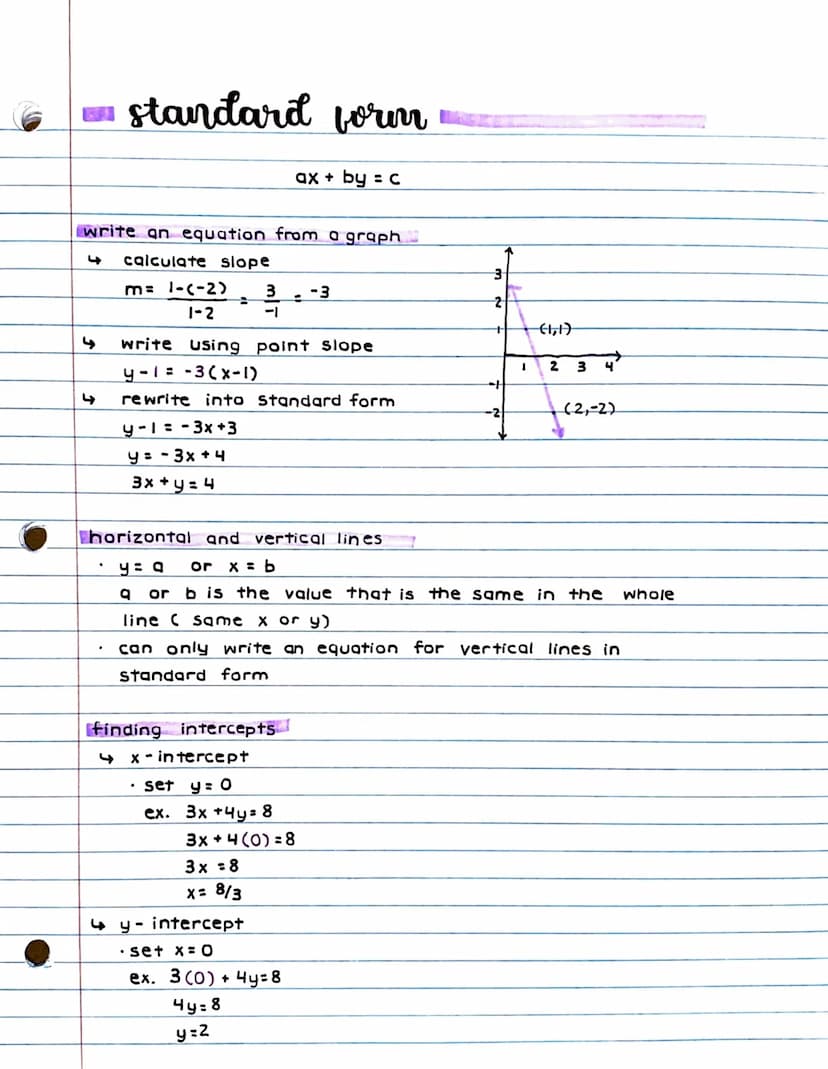 standard form
ax + by = c
write an equation from a graph
↳ calculate slope
m = 1-(-2) / 1-2 = 3 / -1 = -3
↳ write using point slope
y-1 = -3(x-1)
↳ rewrite into standard form
y-1 = -3x+3
y = -3x+4
3x+y=4
3
2
1
-1
-2
1 2 3 4
(1,1)
(2,-2)
horizontal and vertical lines
· y = a or x = b
a or b is the value that is the same in the whole
line (same x or y)
· can only write an equation for vertical lines in
standard form
finding intercepts
↳ x-intercept
· set y=0
ex. 3x+4y=8
3x+4(0)=8
3x=8
x= 8/3
↳ y-intercept
· set x=0
ex. 3(0)+4y=8
4y=8
y=2